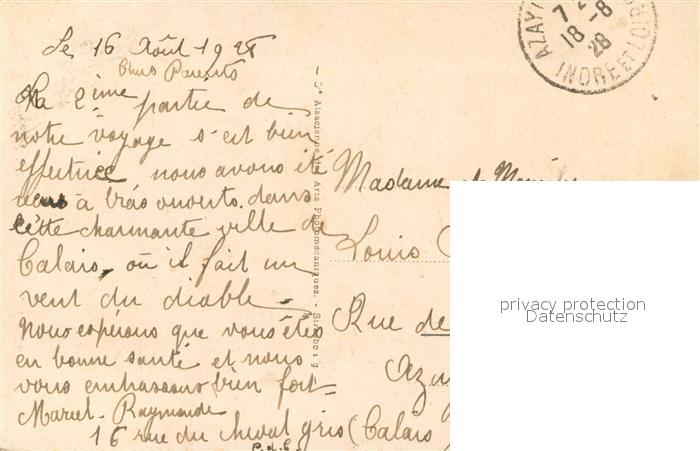 Le 16 Août 1928
Chers Parents
La 2ième partie de
notre voyage s'est bien
effectuée nous avons été
reçus à bras ouverts dans
cette charmante ville de
Calais, où il fait un
vent du diable.
Nous espérons que vous êtes
en bonne santé et nous
vous embrassons bien fort
Marcel - Raymonde
16 rue du cheval gris (Calais)
P. d. C.
Cie Alsacienne des Arts Photomécaniques. - Strasbourg
AZAY
7
18-8
28
INDRE ET LOIRE
Madame et Monsieur
Louis
Rue de
Azay
privacy protection
Datenschutz